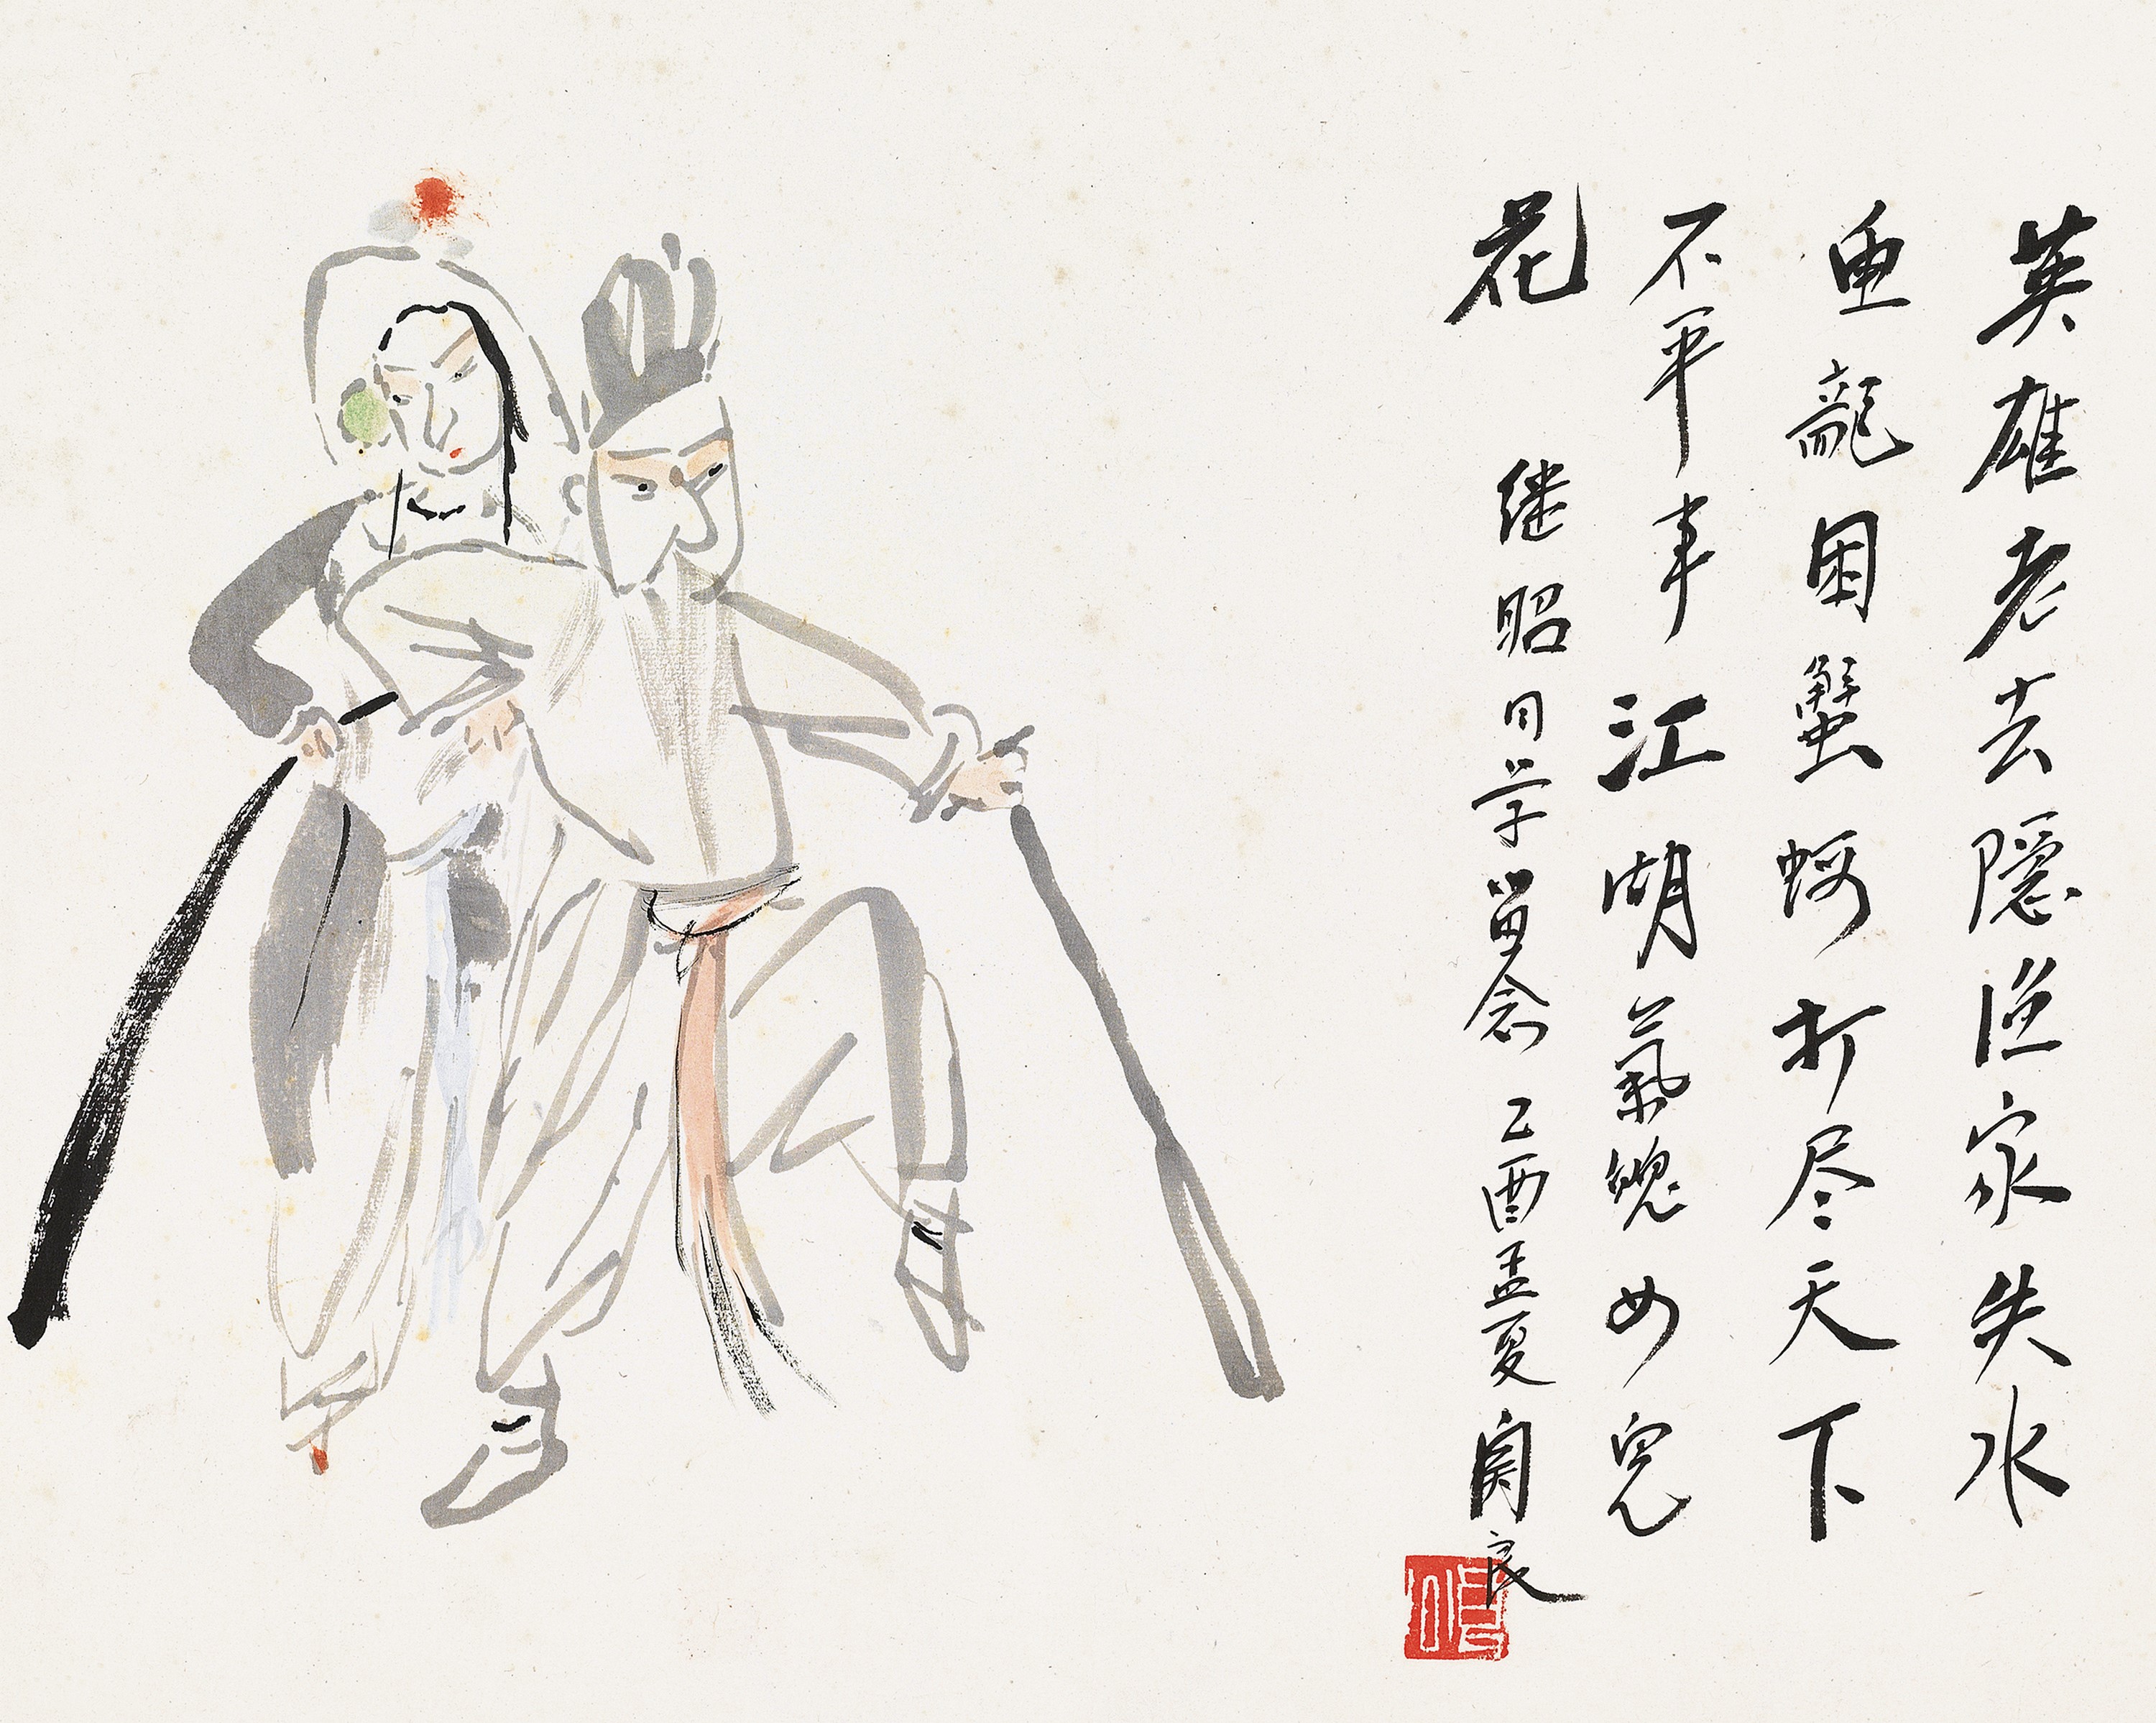 英雄老去隱渔家失水
鱼龍困蟹蝦打尽天下
不平事江湖氣魄女兒
花 继昭同学留念 乙酉孟夏 関良